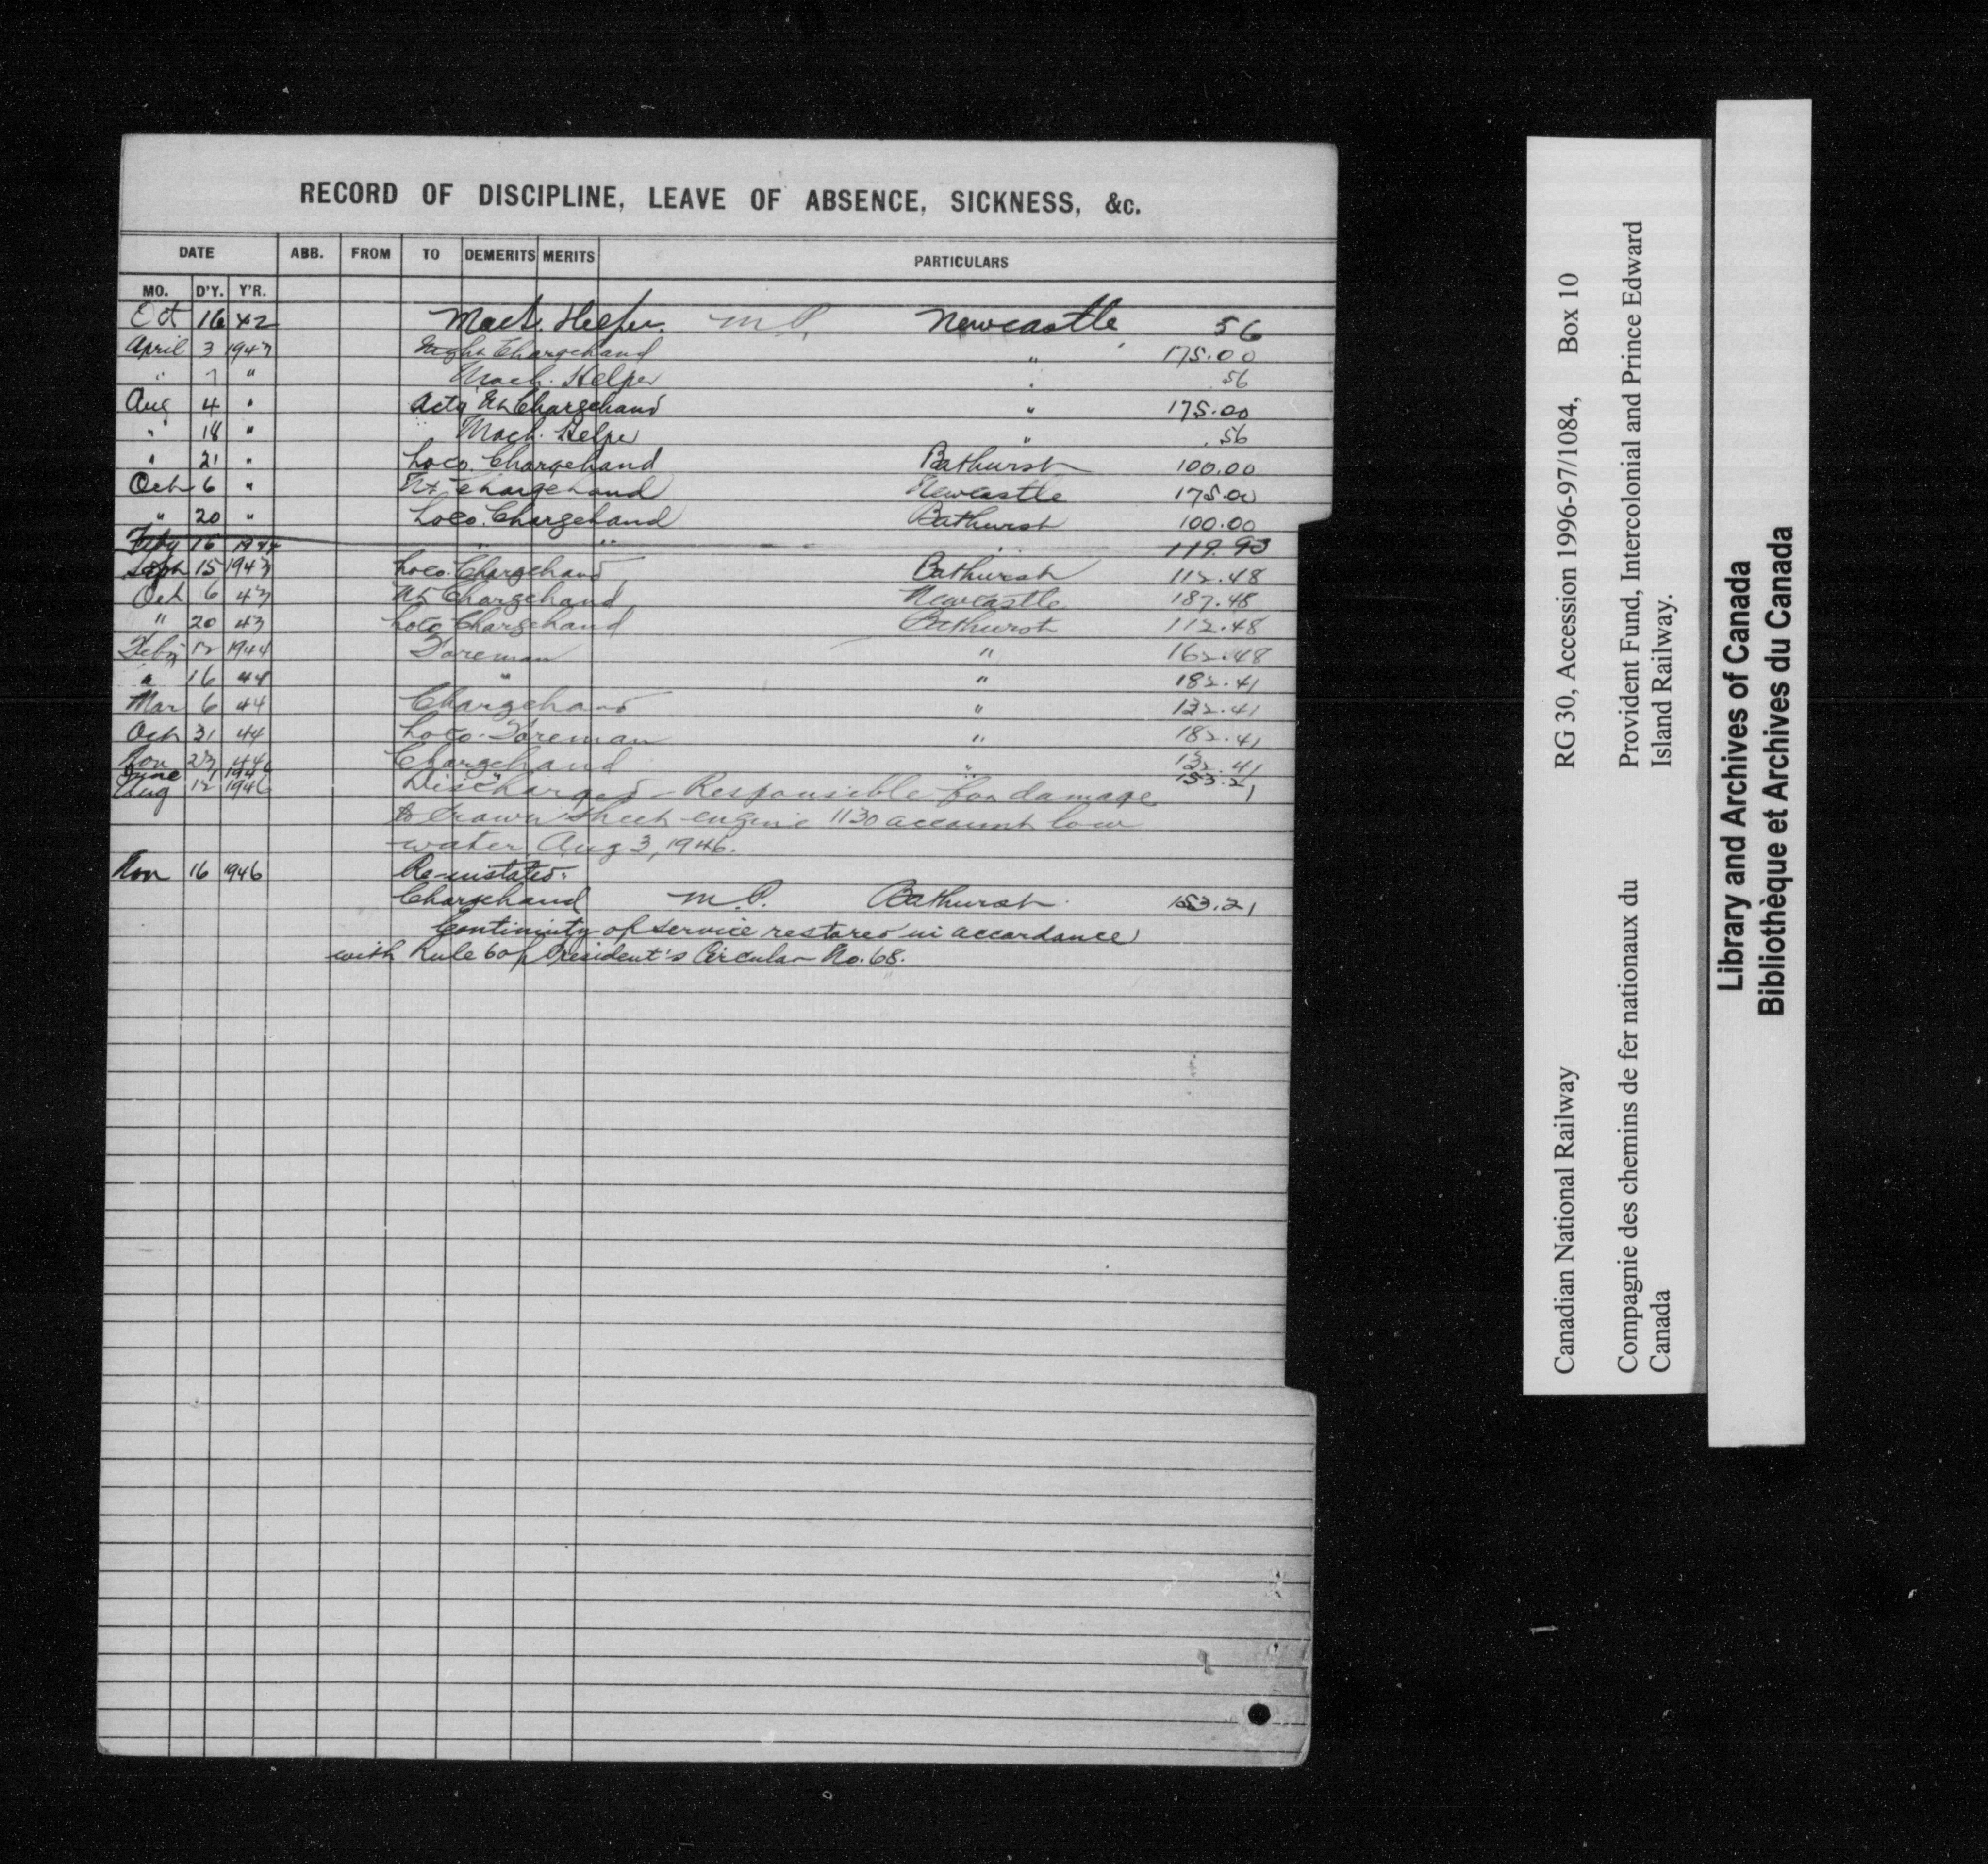 RECORD OF DISCIPLINE, LEAVE OF ABSENCE, SICKNESS, &c.
DATE ABB. FROM TO DEMERITS MERITS PARTICULARS
MO. D'Y. Y'R.
Oct 16 42 Mach. Helper. M.P. Newcastle 56
April 3 1943 Night Chargehand " 175.00
" 7 " Mach. Helper " .56
Aug 4 " Actg Nt Chargehand " 175.00
" 18 " Mach. Helper " .56
" 21 " Loco. Chargehand Bathurst 100.00
Oct 6 " Nt Chargehand Newcastle 175.00
" 20 " Loco. Chargehand Bathurst 100.00
Feby 16 1944 " " " 119.93
Sept 15 1943 Loco. Chargehand Bathurst 112.48
Oct 6 43 Nt Chargehand Newcastle 187.48
" 20 43 Loco Chargehand Bathurst 112.48
Feby 12 1944 Foreman " 162.48
" 16 44 " " 182.41
Mar 6 44 Chargehand " 132.41
Oct 31 44 Loco. Foreman " 182.41
Nov 23 44 Chargehand " 132.41
June 1 1946 " " 153.21
Aug 12 1946 Discharged - Responsible for damage
to crown sheet engine 1130 account low
water Aug 3, 1946.
Nov 16 1946 Re-instated.
Chargehand M.P. Bathurst. 153.21
Continuity of service restored in accordance
with Rule 6 of President's Circular No. 68.
Canadian National Railway RG 30, Accession 1996-97/1084, Box 10
Compagnie des chemins de fer nationaux du Canada Provident Fund, Intercolonial and Prince Edward Island Railway.
Library and Archives of Canada
Bibliothèque et Archives du Canada